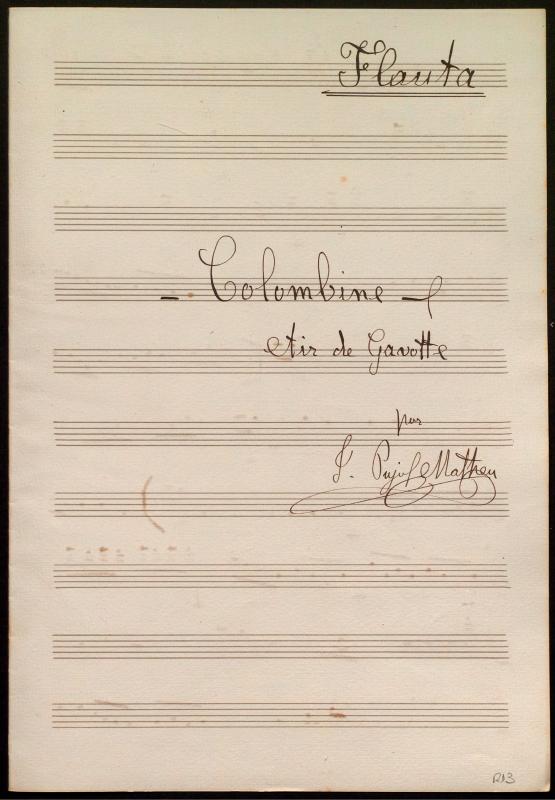 Flauta
- Colombine -
Air de Gavotte
par
F. Pujol Matheu
R13